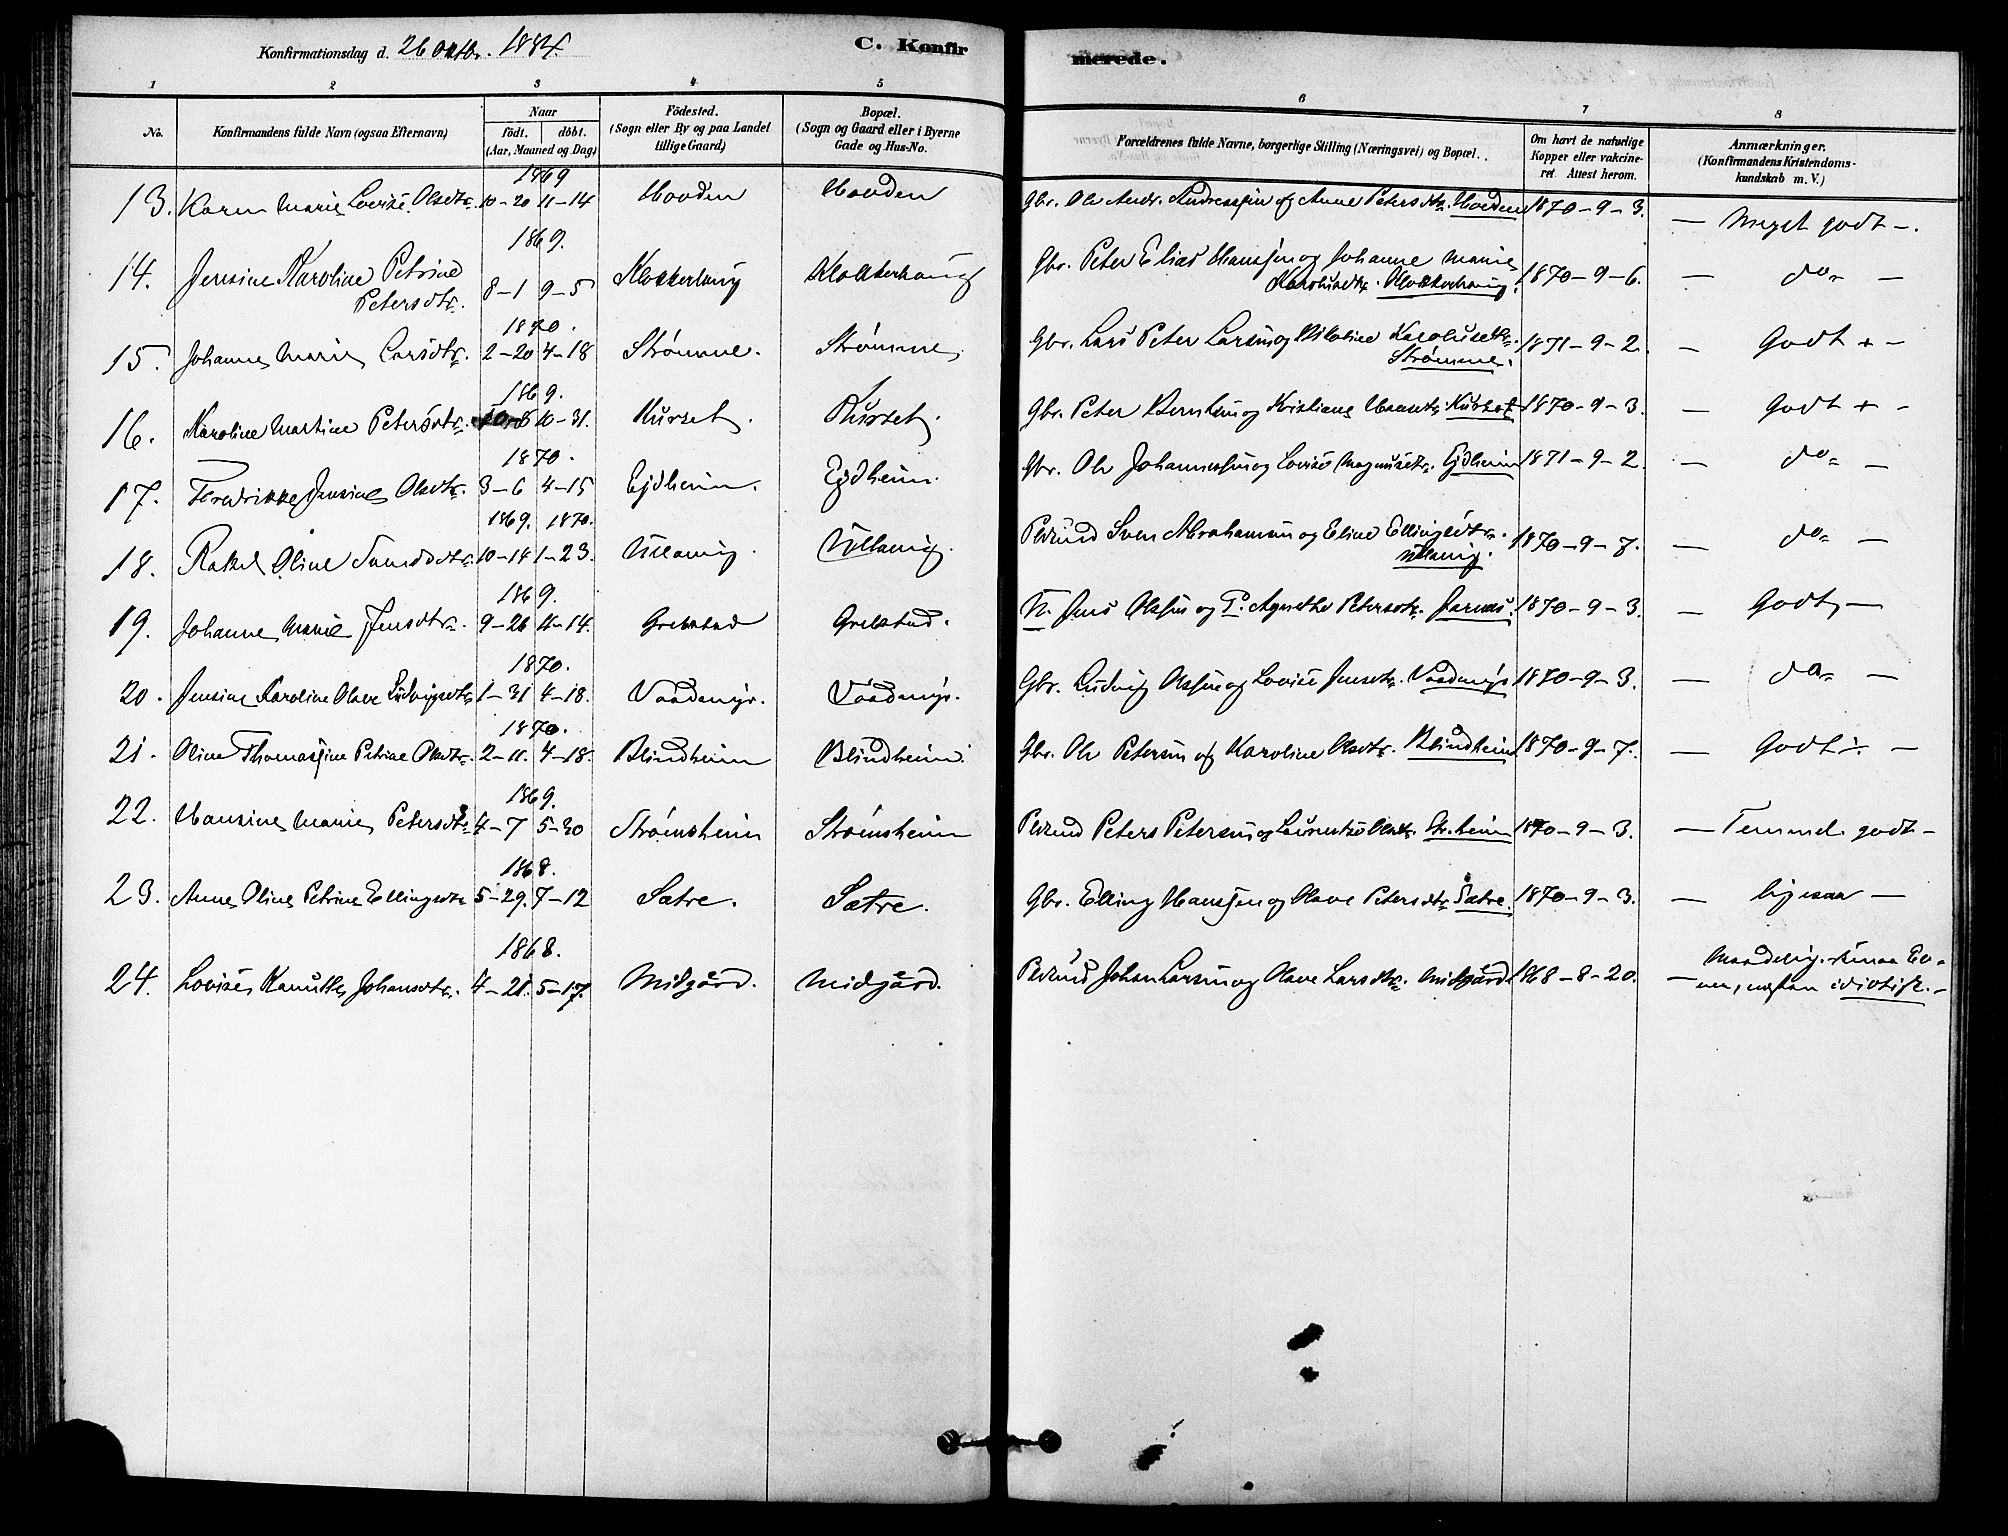 Konfirmationsdag d. 26 Oktbr. 1884.
C. Konfirmerede.
1 2 3 4 5 6 7 8
No. Konfirmandens fulde Navn (ogsaa Efternavn) Naar födt. döbt. (Aar, Maaned og Dag) Födested. (Sogn eller By og paa Landet tillige Gaard) Bopæl. (Sogn og Gaard eller i Byerne Gade og Hus-No. Forældrenes fulde Navne, borgerlige Stilling (Næringsvei) og Bopæl. Om havt de naturlige Kopper eller vakcineret. Attest herom. Anmærkninger. (Konfirmandens Kristendomskundskab m. V.)
1869
13. Karen Marie Lovise Olsdtr. 10-20 11-14 Hovden Hovden Gbr. Ole Andr. Andreassen og Anne Petersdtr. Hovden 1870-9-3. — Meget godt -.
1869.
14. Jensine Karoline Petrine Petersdtr. 8-1 9-5 Klokkerhaug Klokkerhaug Gbr. Peter Elias Hanssen og Johanne Marie Karolusdtr. Klokkerhaug. 1870-9-6. — do —
1870.
15. Johanne Marie Larsdtr. 2-20 4-18 Strømme. Strømme. Gbr. Lars Peter Larsen og Nikoline Karolusdtr. Strømme. 1871-9-2. — Godt + -
1869.
16. Karoline Martine Petersdtr. 10-8 10-31. Kurset. Kurset. Gbr. Peter Berntsen og Kristiane Hansdtr. Kurset 1870-9-3. — Godt + -
1870.
17. Fredrikke Jensine Olsdtr. 3-6 4-15 Ejdheim. Ejdheim. Gbr. Ole Johannessen og Lovise Magnusdtr. Ejdheim 1871-9-2. — do —
1869. 1870.
18. Rakel Oline Svendsdtr. 10-14 1-23. Ullavig. Ullavig. Pldsmd Sven Abrahamsen og Eline Ellingsdtr. Ullavig. 1870-9-7. — do —
1869.
19. Johanne Marie Jensdtr. 9-26 11-14. Grebstad Grebstad. U. Jens Olssen og P. Agnethe Petersdtr. Jarnes. 1870-9-3. — Godt, —
1870.
20. Jensine Karoline Olave Ludvigsdtr. 1-31 4-18. Vaadmyr. Vaadmyr. Gbr. Ludvig Olssen og Lovise Jensdtr. Vaadmyr 1870-9-3. — do —
1870.
21. Oline Thomassine Petrine Olsdtr. 2-11. 4-18. Blindheim Blindheim. Gbr. Ole Petersen og Karoline Olsdtr. Blindheim 1870-9-7. — Godt ÷ —
1869.
22. Hansine Marie Petersdtr. 4-7 5-30 Strømsheim Strømsheim Pldsmd Peters Petersen og Laurentse Olsdtr. Str.heim 1870-9-3. — Temmel. godt —
1868.
23. Anne Oline Petrine Ellingsdtr. 5-29. 7-12 Sætre. Sætre. Gbr. Elling Hanssen og Olave Petersdtr. Sætre. 1870-9-3. — ligesaa —
1868.
24. Lovise Knutte Johansdtr. 4-21. 5-17. Midgård. Midgård. Pldsmd Johan Larsen og Olave Larsdtr. Midgård. 1868-8-20. — Maadelig. smaa Evner, næsten idiotisk. —